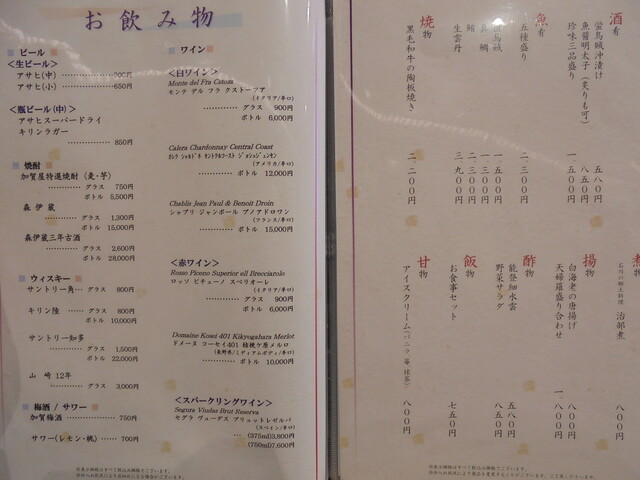 お飲み物
ビール
<生ビール>
アサヒ(中) ……………
アサヒ(小) …………… 650円
<瓶ビール(中)>
アサヒスーパードライ
キリンラガー
…………… 850円
焼酎
加賀屋特選焼酎 (麦・芋)
…………… グラス 750円
…………… ボトル 5,500円
森 伊 蔵
…………… グラス 1,300円
…………… ボトル 15,000円
森伊蔵三年古酒
…………… グラス 2,600円
…………… ボトル 28,000円
ウィスキー
サントリー角… グラス 800円
キリン陸 …… グラス 800円
…… ボトル 10,000円
サントリー知多
…… グラス 1,500円
…… ボトル 22,000円
山 崎 12年
…… グラス 3,000円
梅酒 / サワー
加賀梅酒 …………… 750円
サワー(レモン・桃)…… 700円
ワイン
<白ワイン>
Monte del Fra Custoza
モンテ デル フラ クストーツァ
(イタリア/辛口)
…………… グラス 900円
…………… ボトル 6,000円
Calera Chardonnay Central Coast
カレラ シャルドネ セントラルコースト ジョシュジェンセン
(アメリカ/辛口)
…………… ボトル 12,000円
Chablis Jean Paul & Benoit Droin
シャブリ ジャンポール ブノアドロワン
(フランス/辛口)
…………… ボトル 15,000円
<赤ワイン>
Rosso Piceno Superior ell Brecciarolo
ロッソ ピチェーノ スペリオーレ
(イタリア/辛口)
…………… グラス 900円
…………… ボトル 6,000円
Domaine Kosei 401 Kikyogahara Merlot
ドメーヌ コーセイ401 桔梗ケ原メルロ
(長野県/ミディアムボディ/辛口)
…………… ボトル 10,000円
<スパークリングワイン>
Segura Viudas Brut Reserva
セグラ ヴューダス ブリュットレゼルバ
(スペイン/辛口)
… (375ml)3,800円
(750ml)7,600円
酒肴
蛍烏賊沖漬け 五八〇円
魚醤明太子(炙りも可) 八五〇円
珍味三品盛り 一、五〇〇円
魚肴
五種盛り 二、三〇〇円
一、五〇〇円
鯛 一、三〇〇円
鮪 二、三〇〇円
生雲丹 三、九〇〇円
焼物
黒毛和牛の陶板焼き 二、二〇〇円
煮物
石川の郷土料理 治部煮 八〇〇円
揚物
白海老の唐揚げ 八〇〇円
天婦羅盛り合わせ 一、八〇〇円
酢物
能登細水雲 五八〇円
野菜サラダ 八五〇円
飯物
お食事セット 七五〇円
甘物
アイスクリーム(バニラ・苺・抹茶) 八〇〇円